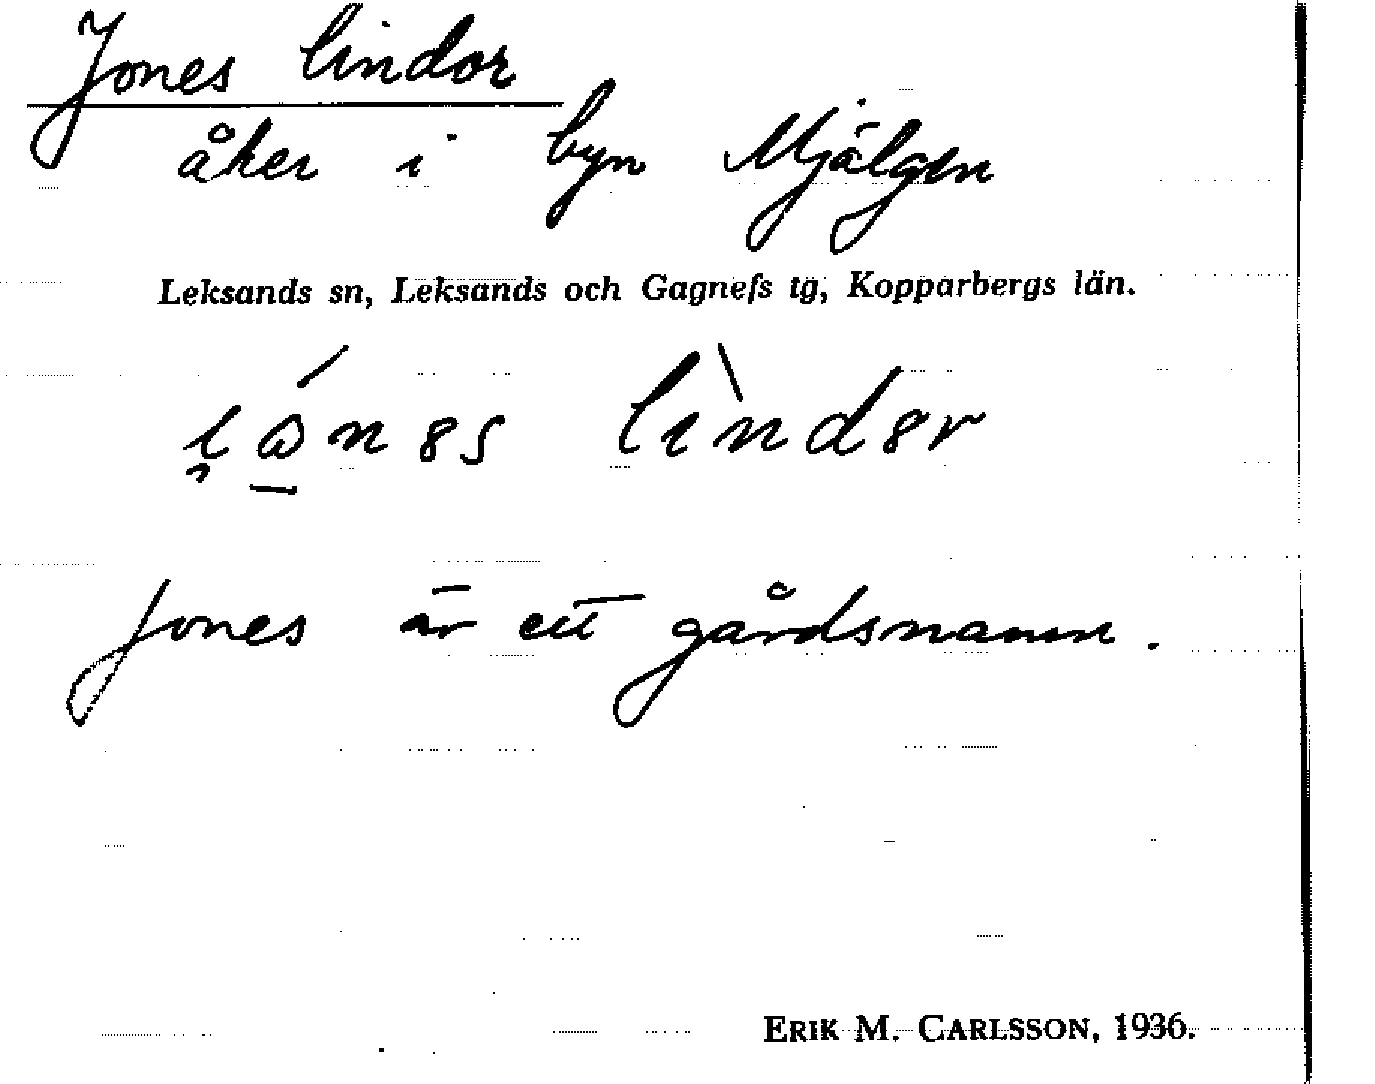 Jones lindor
åker i byn Mjälgen
Leksands sn, Leksands och Gagnefs tg, Kopparbergs län.
Jones är ett gårdsnamn.
ERIK M. CARLSSON, 1936.